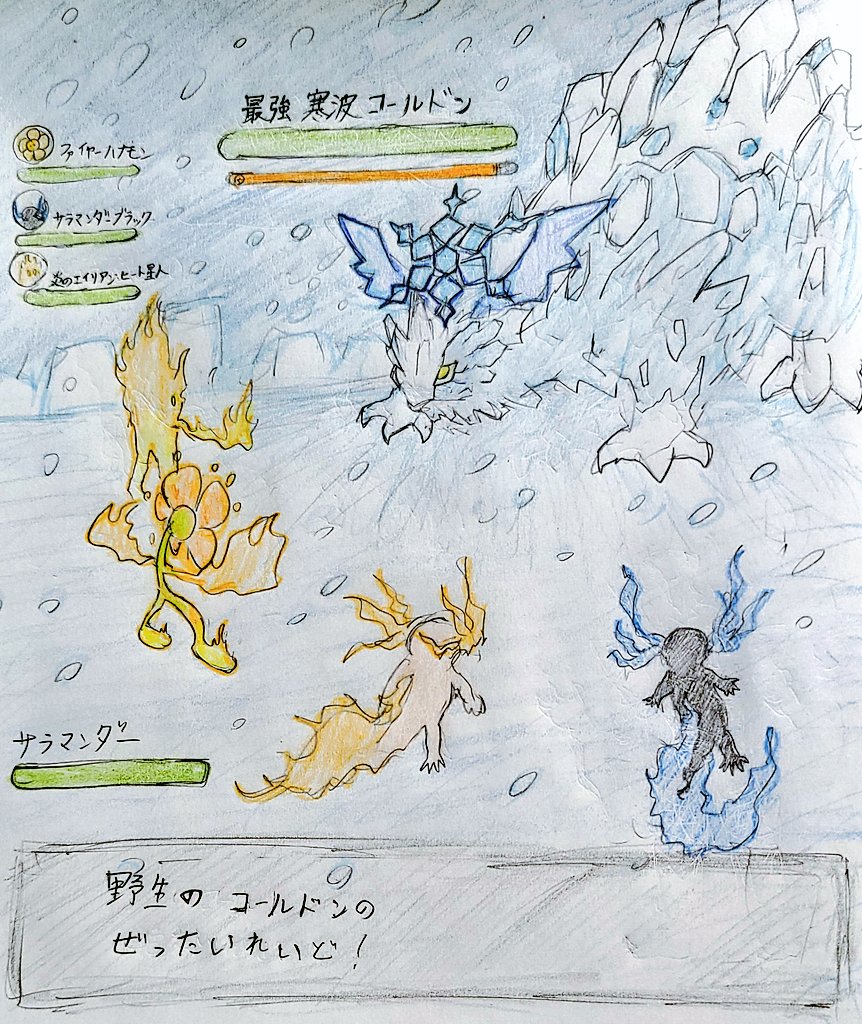 最強 寒波 コールドン
ファイヤーハナモン
サラマンダーブラック
炎のエイリアン・ヒート星人
サラマンダー
野生の コールドンの
ぜったいれいど！